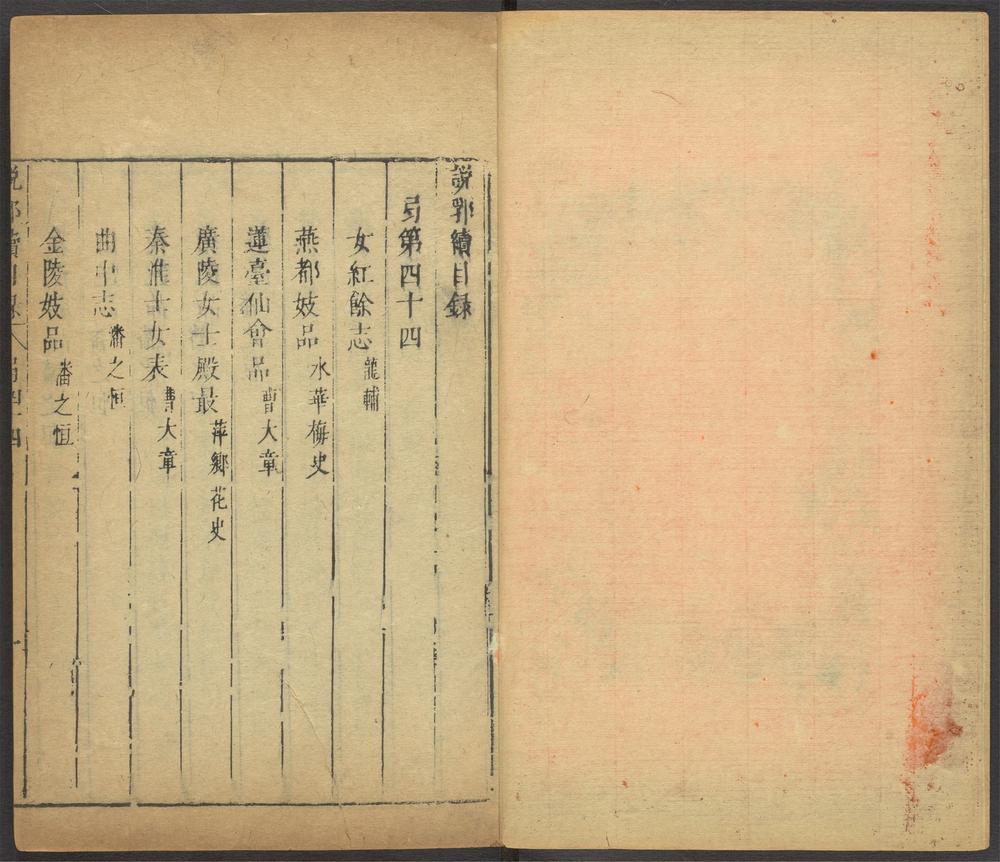 說郛續目錄
弓第四十四
女紅餘志 龍輔
燕都妓品 氷華梅史
蓮臺仙會品 曹大章
廣陵女士殿最 萍鄉花史
秦淮士女表 曹大章
曲中志 潘之恒
金陵妓品 潘之恒